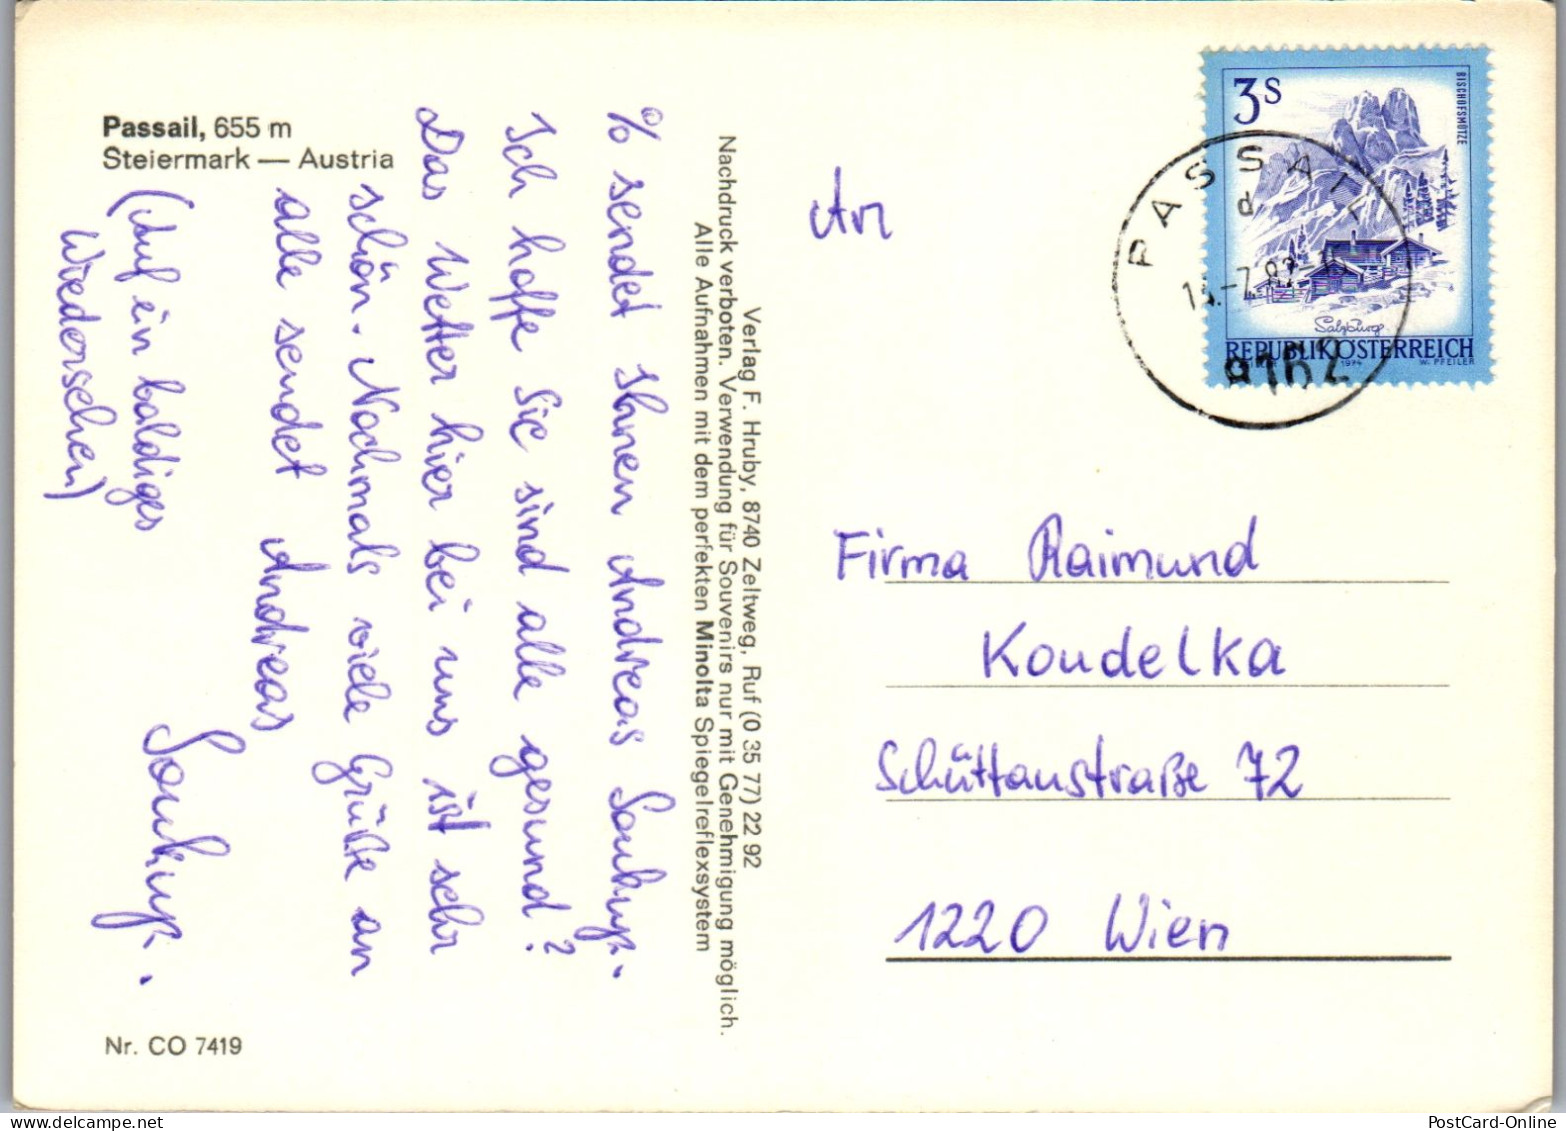 Passail, 655 m
Steiermark — Austria
% sendet Ihnen Andreas Soukup.
Ich hoffe Sie sind alle gesund?
Das Wetter hier bei uns ist sehr
schön. Nochmals viele Grüße an
alle sendet Andreas
Soukup.
(Auf ein baldiges
Wiedersehen)
Nr. CO 7419
Verlag F. Hruby, 8740 Zeltweg, Ruf (0 35 77) 22 92
Nachdruck verboten. Verwendung für Souvenirs nur mit Genehmigung möglich.
Alle Aufnahmen mit dem perfekten Minolta Spiegelreflexsystem
3 S
BISCHOFSMÜTZE
Salzburg
REPUBLIK ÖSTERREICH
1974 W. PFEILER
PASSAIL
d
8162
An
Firma Raimund
Koudelka
Schüttaustraße 72
1220 Wien
PostCard-Online